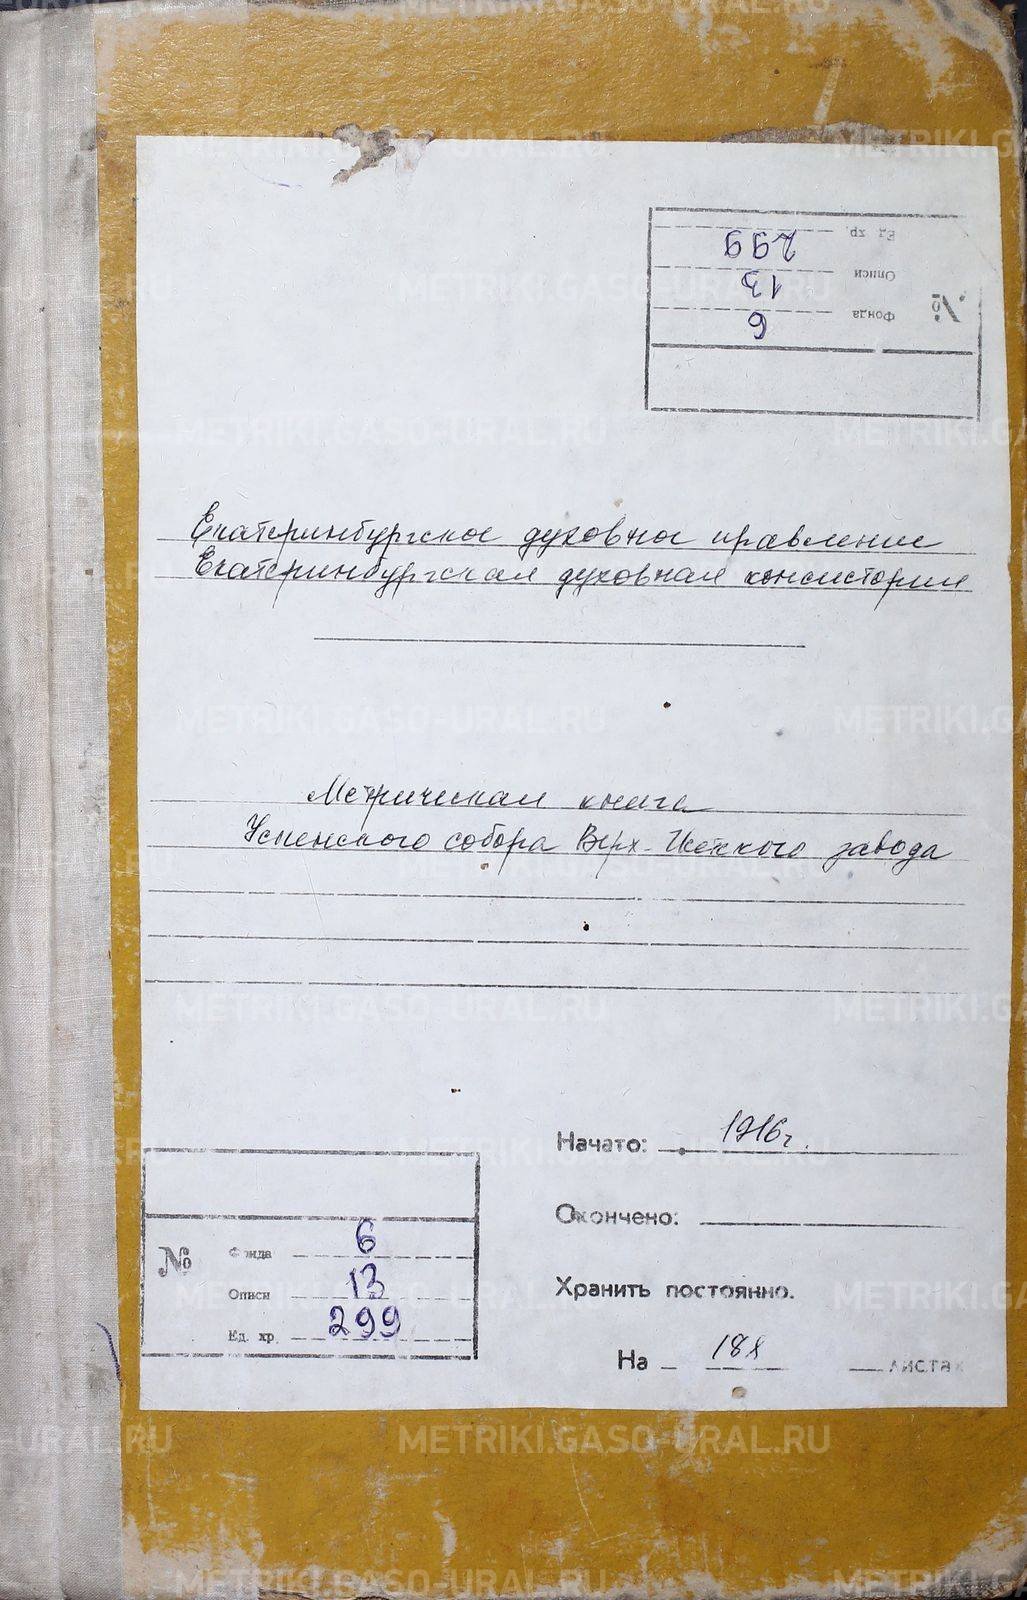 Ед. хр. 299
Описи 13
№ Фонда 6
Екатеринбургское духовное правление
Екатеринбургская духовная консистория
Метрическая книга
Успенского собора Верх-Исетского завода
Начато: 1916 г.
Окончено:
Хранить постоянно.
На 188 листах
№ Фонда 6
Описи 13
Ед. хр. 299
METRIKI.GASO-URAL.RU